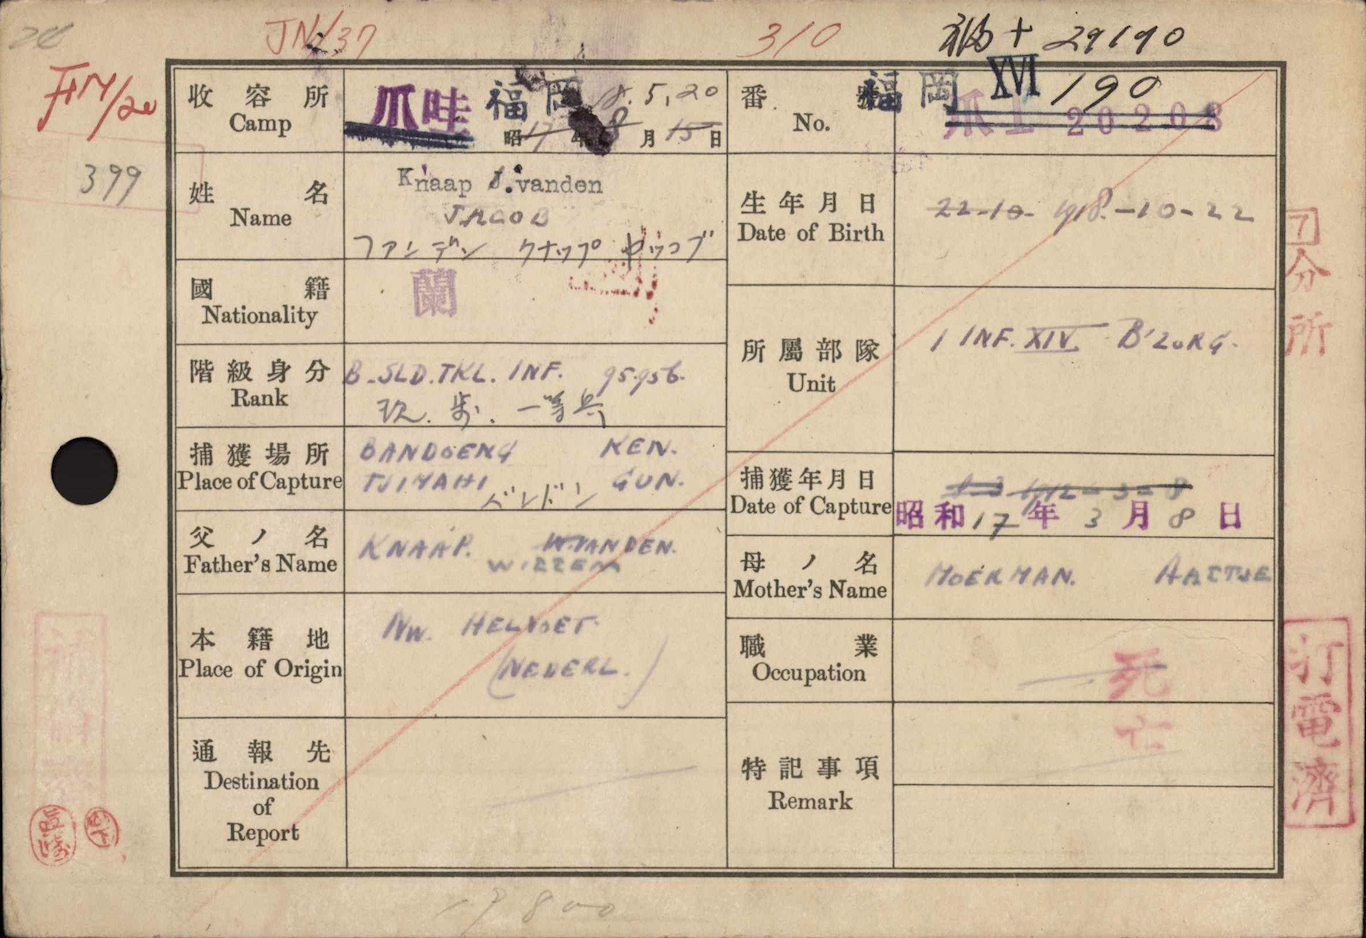 JN/37
310
福 29190
FN/20
399
收容所
Camp
爪哇 福岡 18.5,20
昭 17 年 8 月 15 日
番 號
No.
福岡 XVI 190
爪 I 20208
姓 名
Name
Knaap J. vanden
JACOB
ファンデン クナップ ヤコブ
生年月日
Date of Birth
22-10- 1918.-10-22
國 籍
Nationality
蘭
所屬部隊
Unit
1 INF. XIV. B'ZORG.
7
分
所
階級身分
Rank
B.SLD.TKL. INF. 95956.
一等兵
捕獲場所
Place of Capture
BANDOENG KEN.
TJIMAHI GUN.
バンドン
捕獲年月日
Date of Capture
昭和 17 年 3 月 8 日
父ノ名
Father's Name
KNAAP. W.VANDEN.
WILLEM
母ノ名
Mother's Name
MOERMAN. AALTJE
本籍地
Place of Origin
NW. HELVOET.
(NEDERL.)
職 業
Occupation
死
亡
通報先
Destination
of
Report
特記事項
Remark
打
電
濟